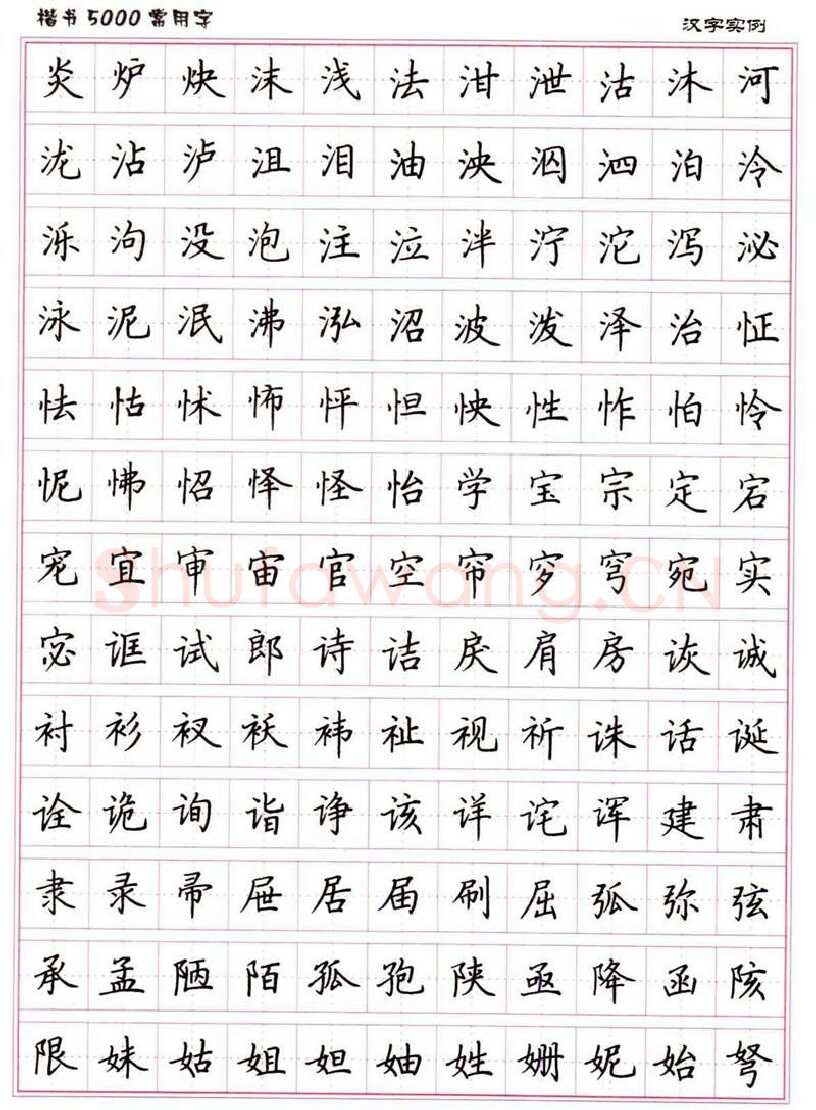 楷书5000常用字
汉字实例
炎炉炔沫浅法泔泄沽沐河
泷沾泸沮泪油泱泅泗泊泠
泺沟没泡注泣泮泞沱泻泌
泳泥泯沸泓沼波泼泽治怔
怯怙怵怖怦怛怏性怍怕怜
怩怫怊怿怪怡学宝宗定宕
宠宜审宙官空帘穸穹宛实
宓诓试郎诗诘戾肩房诙诚
衬衫衩袄袆祉视祈诛话诞
诠诡询诣诤该详诧诨建肃
隶录帚屉居届刷屈弧弥弦
承孟陋陌孤孢陕亟降函陔
限妹姑姐妲妯姓姗妮始弩
Shufawang.CN